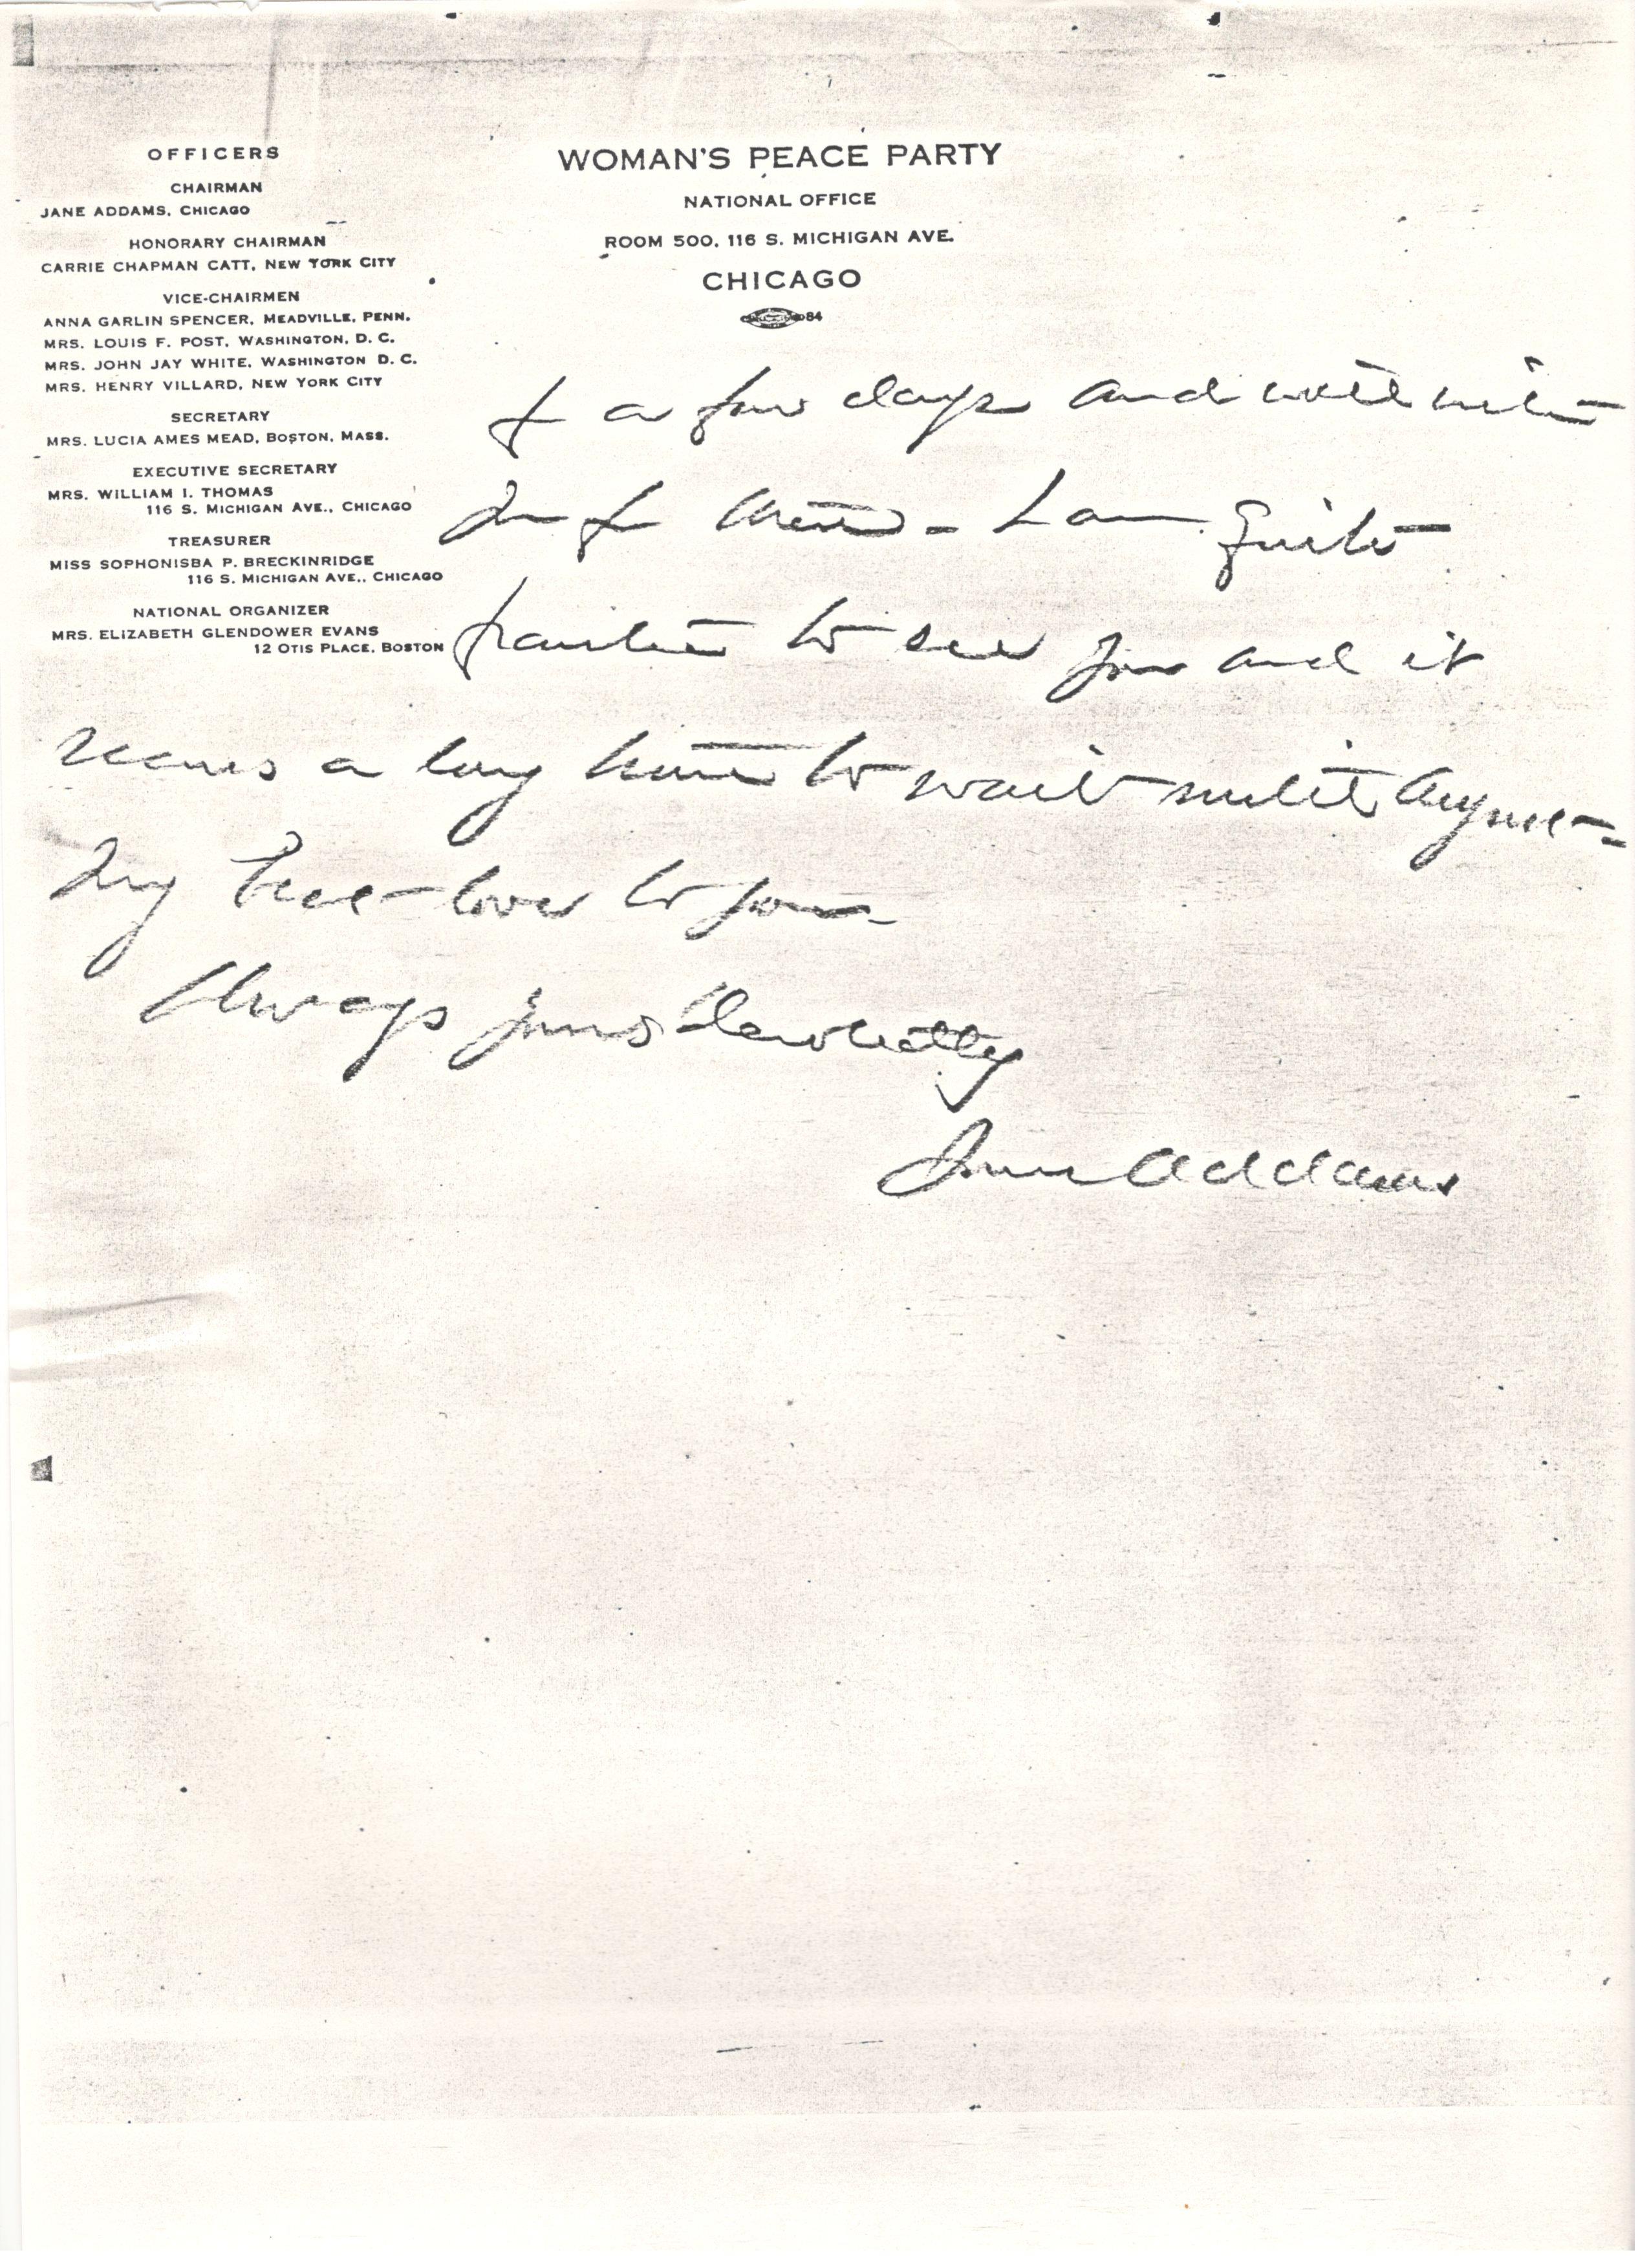 OFFICERS
CHAIRMAN
JANE ADDAMS, CHICAGO
HONORARY CHAIRMAN
CARRIE CHAPMAN CATT, NEW YORK CITY
VICE-CHAIRMEN
ANNA GARLIN SPENCER, MEADVILLE, PENN.
MRS. LOUIS F. POST, WASHINGTON, D. C.
MRS. JOHN JAY WHITE, WASHINGTON D. C.
MRS. HENRY VILLARD, NEW YORK CITY
SECRETARY
MRS. LUCIA AMES MEAD, BOSTON, MASS.
EXECUTIVE SECRETARY
MRS. WILLIAM I. THOMAS
116 S. MICHIGAN AVE., CHICAGO
TREASURER
MISS SOPHONISBA P. BRECKINRIDGE
116 S. MICHIGAN AVE., CHICAGO
NATIONAL ORGANIZER
MRS. ELIZABETH GLENDOWER EVANS
12 OTIS PLACE, BOSTON
WOMAN'S PEACE PARTY
NATIONAL OFFICE
ROOM 500, 116 S. MICHIGAN AVE.
CHICAGO
84
for a few days and will write
- I am quite
frantic to see you and it
seems a long time to wait until August -
My best love to you -
Always yours devotedly
Jane Addams